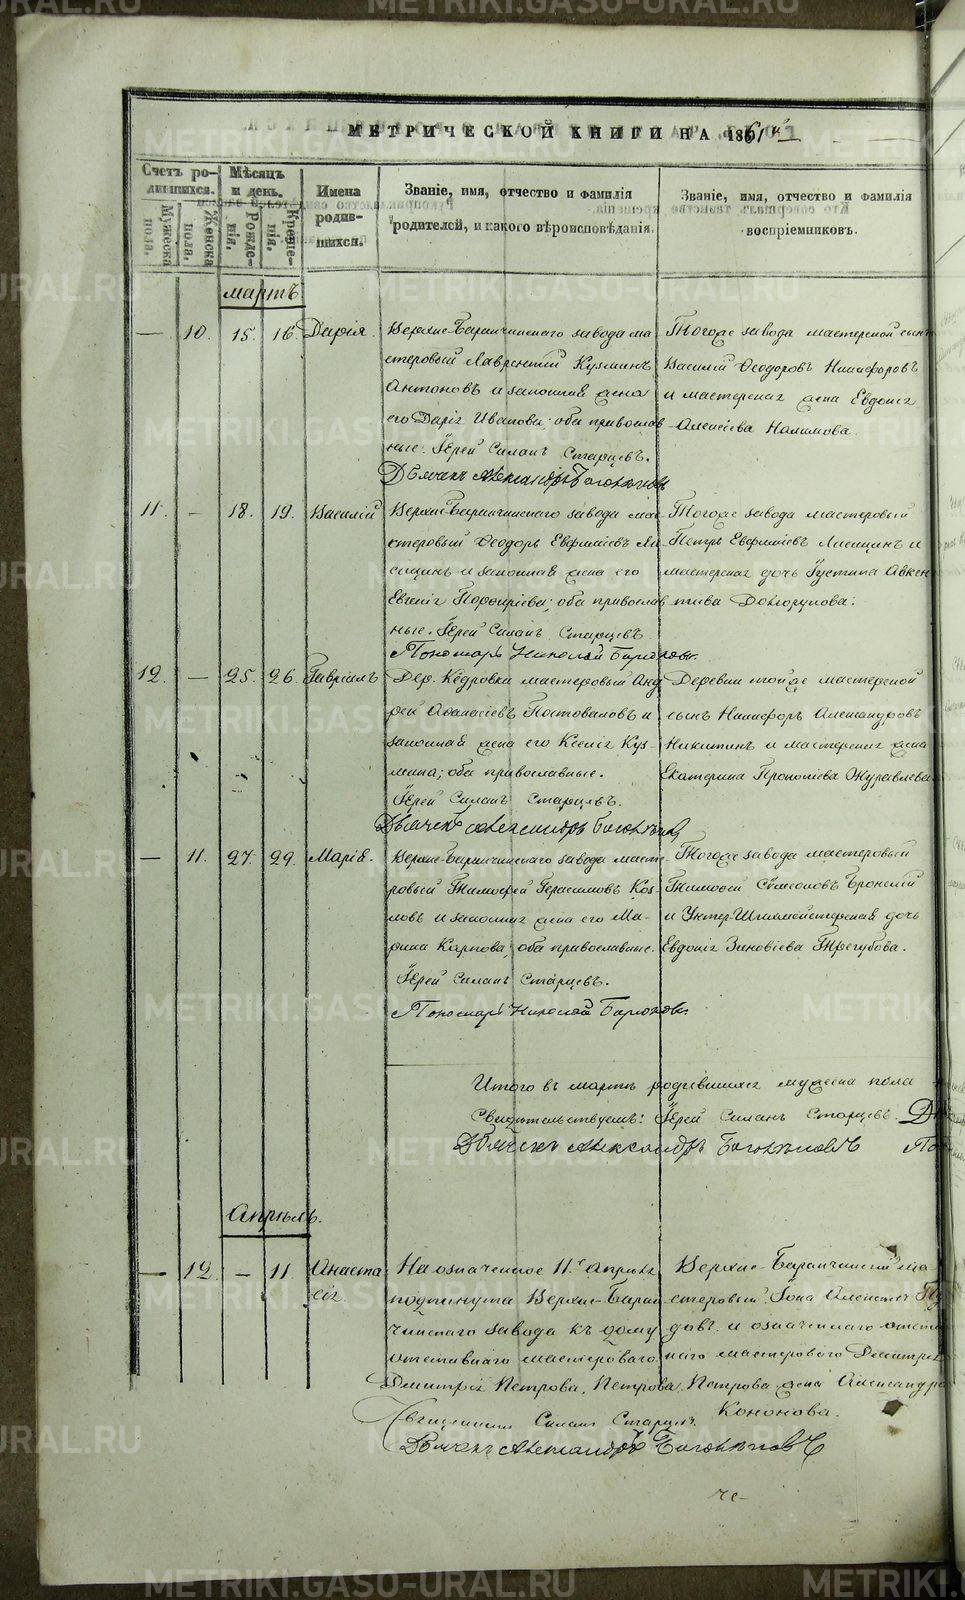 МЕТРИЧЕСКОЙ КНИГИ НА 1861 й
Счетъ ро-
дившихся.
Мужеска пола.
Женска пола.
Мѣсяцъ
и день.
Рожде-
нія.
Креще-
нія.
Имена
родив-
шихся.
Званіе, имя, отчество и фамилія
родителей, и какого вѣроисповѣданія.
Званіе, имя, отчество и фамилія
воспріемниковъ.
Мартъ
— 10. 15. 16. Дарія.
Верхне-Баранчинскаго завода ма-
стеровый Лаврентій Кузминъ
Антоновъ и законная жена
его Дарія Иванова; оба православ-
ные. Іерей Силанъ Старцевъ.
Дьячекъ Александръ
Тогоже завода мастерской сынъ
Василій Ѳеодоровъ Никифоровъ
и мастерская жена Евдокія
Алексіева Налимова.
11. — 18. 19. Василій
Верхне-Баранчинскаго завода мас-
стеровый Ѳеодоръ Евфиміевъ Ли-
сицынъ и законная жена его
Евгенія Порфиріева; оба православ-
ные. Іерей Силанъ Старцевъ.
Пономарь Николай
Тогоже завода мастеровый
Петръ Евфиміевъ Лисицынъ и
мастерская дочь Іустина Авксен-
тіева Долгорукова.
12. — 25. 26. Гавріилъ
Дер. Кедровки мастеровый Анд-
рей Аѳанасіевъ Постоваловъ и
законная жена его Ксенія Куз-
мина; оба православные.
Іерей Силанъ Старцевъ.
Дьячекъ Александръ
Деревни тойже мастерской
сынъ Никифоръ Александровъ
Никитинъ и мастерская жена
Екатерина Прокопіева Журавлева
— 11. 27. 29. Марія.
Верхне-Баранчинскаго завода масте-
ровый Тимофей Герасимовъ Коз-
ловъ и законная жена его Ма-
рина Карпова; оба православные.
Іерей Силанъ Старцевъ.
Пономарь Николай
Тогоже завода мастеровый
Тимофей Симеоновъ Бронскій
и Унтер-Шихмейстерская дочь
Евдокія Зиновіева Трегубова.
Итого въ мартѣ родившихся мужеска пола
Свидѣтельствуемъ: Іерей Силанъ Старцевъ.
Дьячекъ Александръ
Апрѣль.
— 12. — 11 Анаста-
сія
На означенное 11.е апрѣля
подкинута Верхне-Баран-
чинскаго завода къ дому
отставнаго мастероваго
Дмитрія Петрова.
Священникъ Силанъ Старцевъ.
Дьячекъ Александръ
Верхне-Баранчинскій ма-
стеровый Іона Алексіевъ
довъ. и означеннаго отстав-
наго мастероваго Дмитрія
Петрова жена Александра
Кононова.
METRIKI.GASO-URAL.RU